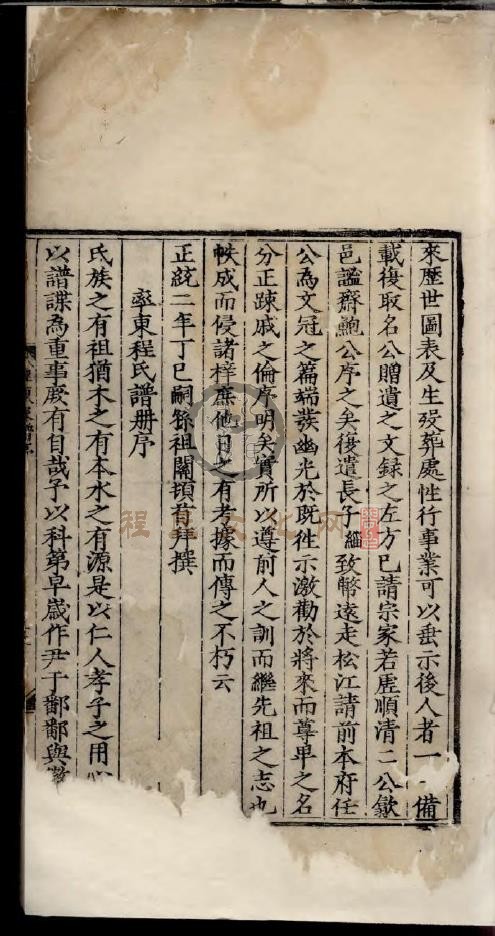 來歷世圖表及生歿葬處性行事業可以垂示後人者一一備
載復取名公贈遺之文録之左方已請宗家若虛順清二公歙
邑謐齋鮑公序之矣復遣長子經致幣遠走松江請前本府任
公為文冠之篇端發幽光於既徃示激勸於將來而尊卑之名
分正踈戚之倫序明矣實所以遵前人之訓而繼先祖之志也
帙成而侵諸梓庶他日之有考據而傳之不朽云
正統二年丁巳嗣孫祖關頓首拜撰
率東程氏譜册序
氏族之有祖猶木之有本水之有源是以仁人孝子之用心
以譜諜為重事厥有自哉予以科第卓歲作尹于鄱鄱與
程氏文化网